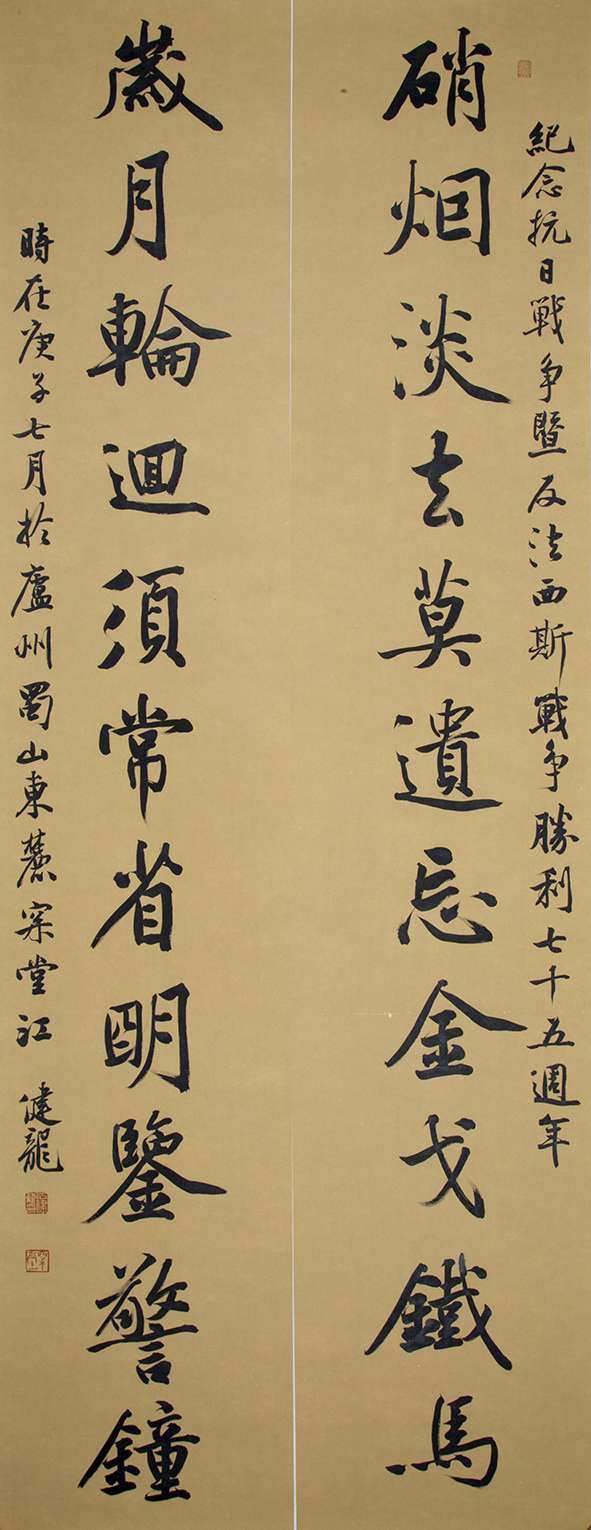 紀念抗日戰争暨反法西斯戰争勝利七十五週年
硝烟淡去莫遺忘金戈鐵馬
歲月輪迴須常省明鑒警鐘
時在庚子七月於廬州蜀山東麓堂江健龍